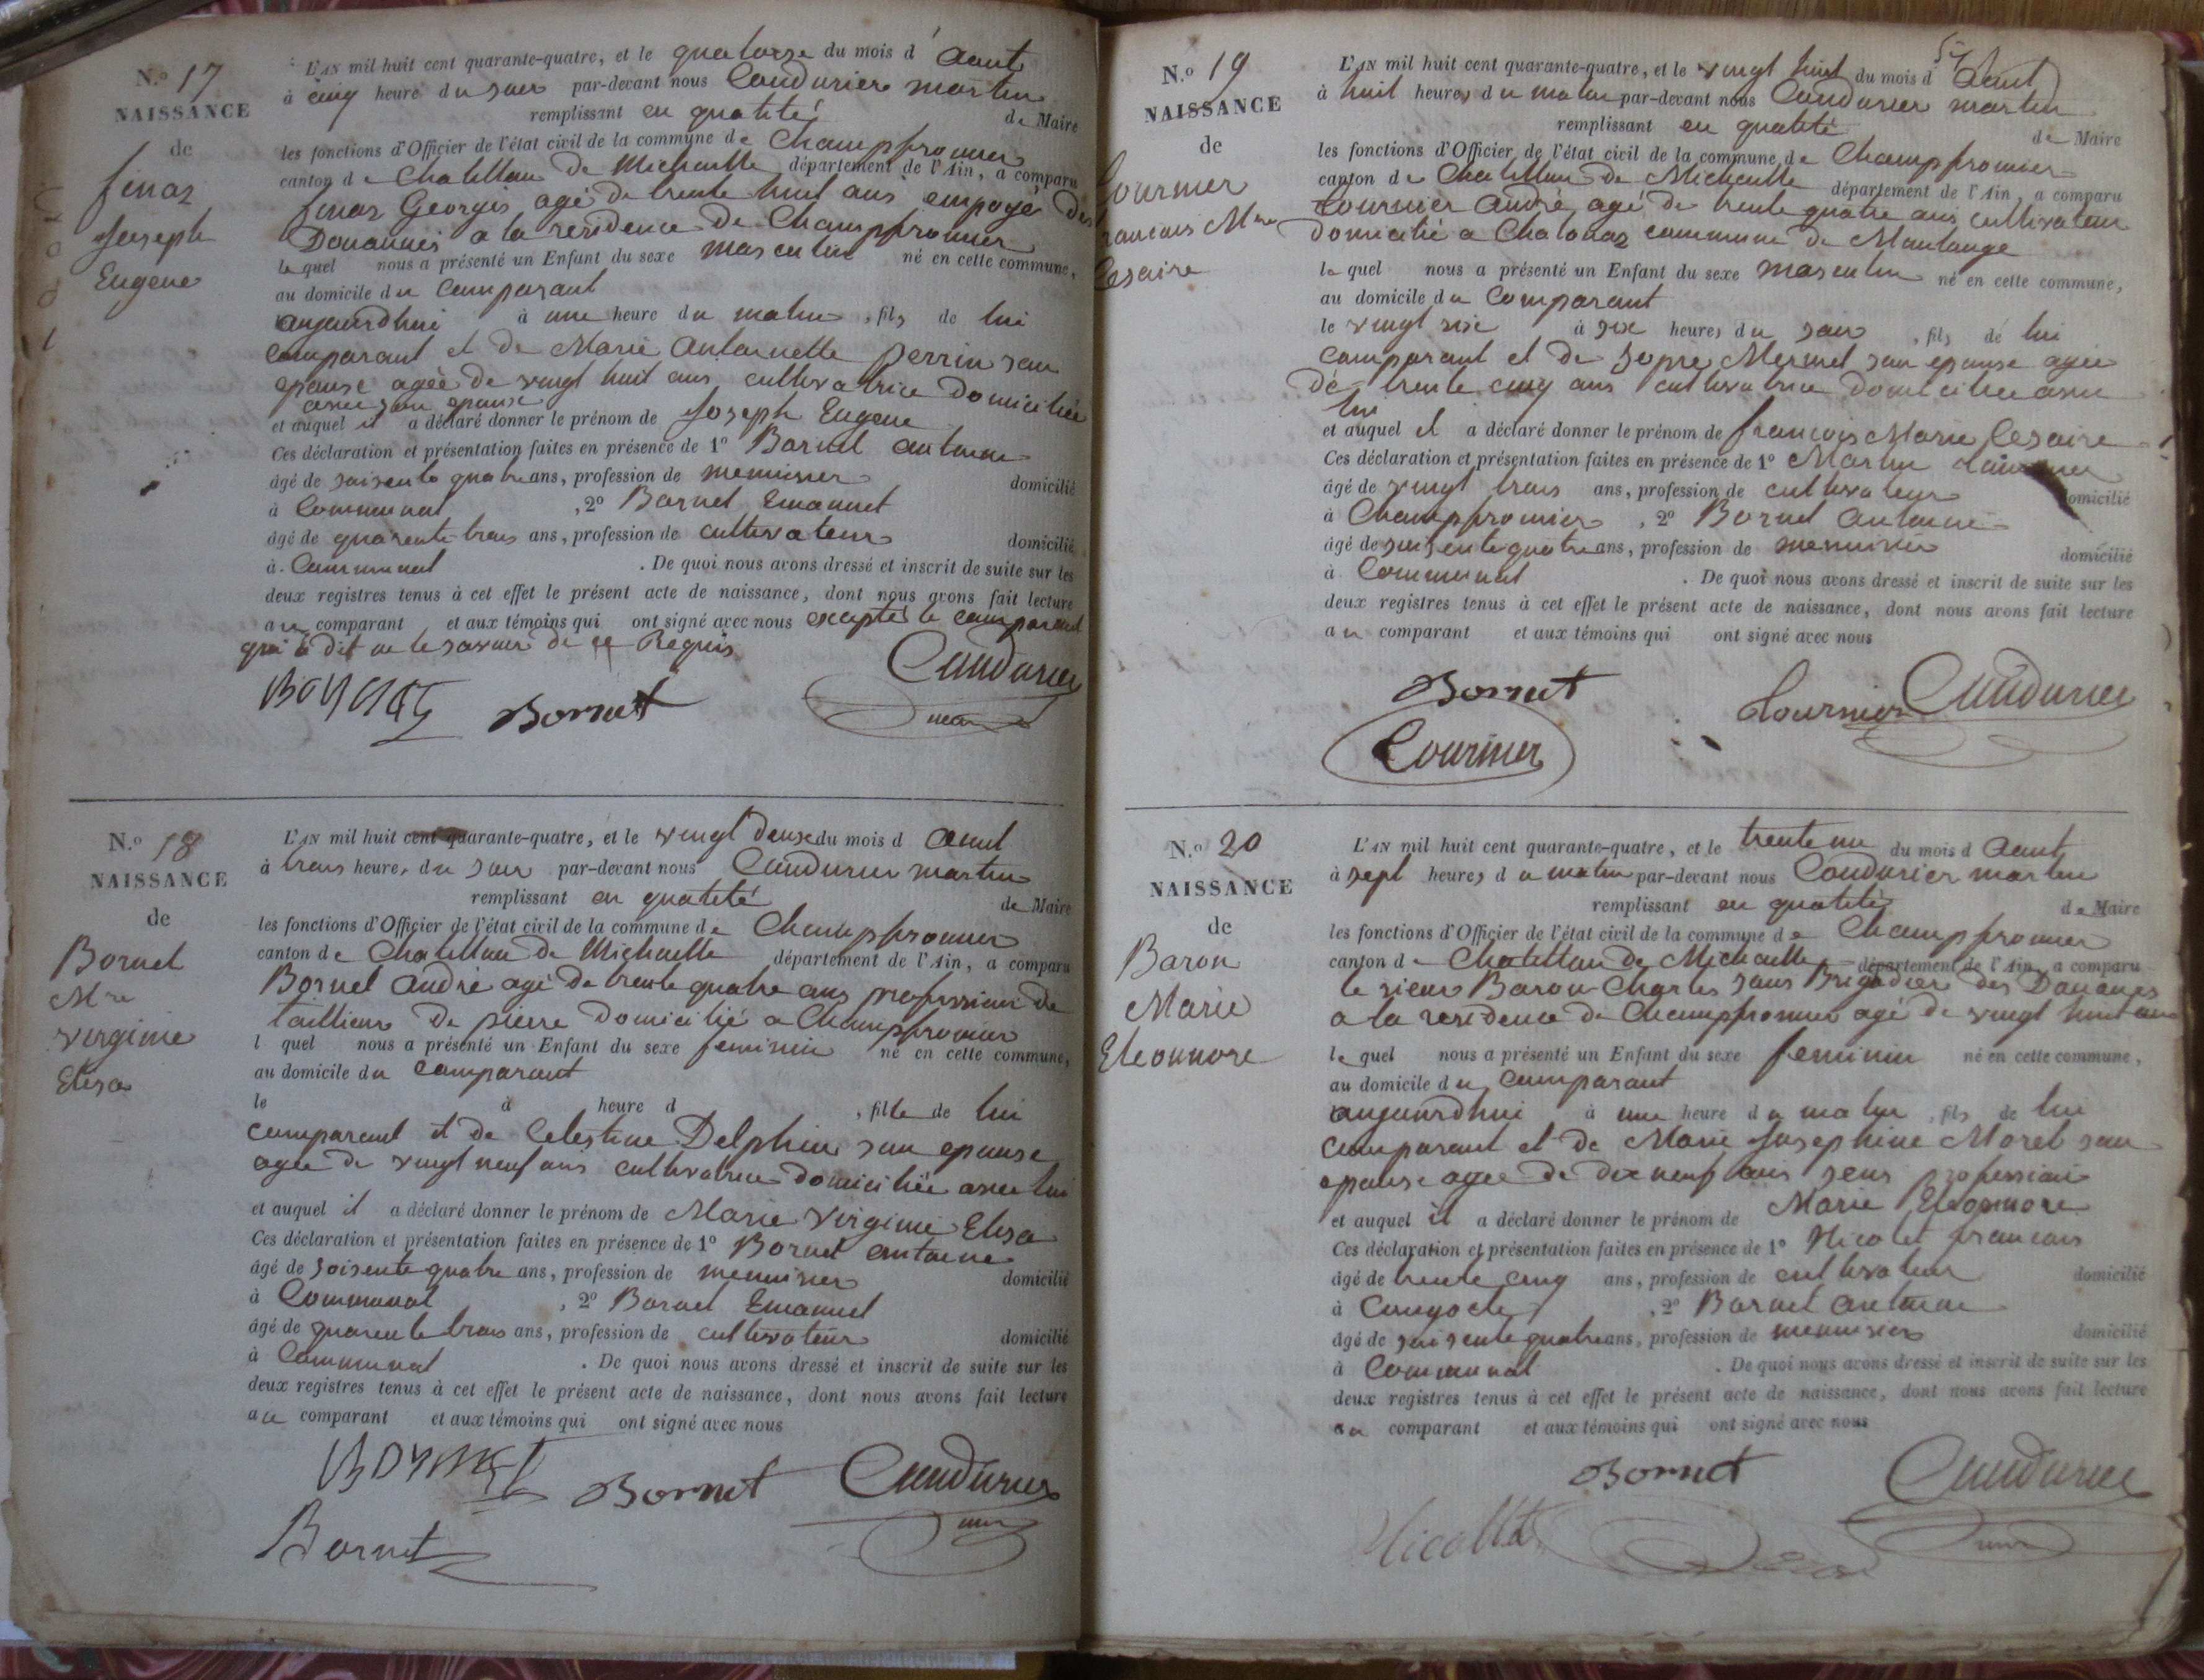 N.º 17
NAISSANCE
de
finaz
Joseph
Eugene
L'AN mil huit cent quarante-quatre, et le quatorze du mois d'Aout
à cinq heure du soir par-devant nous Coudurier martin
remplissant en qualité de Maire
les fonctions d'Officier de l'état civil de la commune de Champfromier
canton de Chatillon de Michaille département de l'Ain, a comparu
finaz Georgis agé de trente huit ans empoyé des
Douannes a la residence de Champfromier
lequel nous a présenté un Enfant du sexe masculin né en cette commune,
au domicile du comparant
aujourdhui à une heure du matin, fils de lui
comparant et de Marie Antoinette perrin son
epouse agée de vingt huit ans cultivatrice domiciliée
avec son epoux
et auquel il a déclaré donner le prénom de Joseph Eugene
Ces déclaration et présentation faites en présence de 1º Bornet antoine
âgé de soisente quatre ans, profession de menuisier domicilié
à Communal, 2º Bornet Emanuel
âgé de quarente trois ans, profession de cultivateur domicilié
à Communal. De quoi nous avons dressé et inscrit de suite sur les
deux registres tenus à cet effet le présent acte de naissance, dont nous avons fait lecture
au comparant et aux témoins qui ont signé avec nous excepté le comparant
qui a dit ne le savoir de ce Requis
Bornet Bornet Coudurier
maire
N.º 18
NAISSANCE
de
Bornet
Mrie
virginie
Elisa
L'AN mil huit cent quarante-quatre, et le vingt deux du mois d aout
à trois heures du soir par-devant nous Coudurier martin
remplissant en qualité de Maire
les fonctions d'Officier de l'état civil de la commune de Champfromier
canton de Chatillon de Michaille département de l'Ain, a comparu
Bornet andré agé de trente quatre ans profession de
taillieur de pierre domicilié a Champfromier
l quel nous a présenté un Enfant du sexe feminin né en cette commune,
au domicile du comparant
le à heure d, fille de lui
comparant et de Celestine Delphine son epouse
agée de vingt neuf ans cultivatrice domiciliée avec lui
et auquel il a déclaré donner le prénom de Marie virginie Elisa
Ces déclaration et présentation faites en présence de 1º Bornet antoine
âgé de soisente quatre ans, profession de menuisier domicilié
à Communal, 2º Bornet Emanuel
âgé de quarente trois ans, profession de cultivateur domicilié
à Communal. De quoi nous avons dressé et inscrit de suite sur les
deux registres tenus à cet effet le présent acte de naissance, dont nous avons fait lecture
au comparant et aux témoins qui ont signé avec nous
Bornet Bornet Coudurier
maire
Bornet
N.º 19
NAISSANCE
de
Tournier
francois Mrie
Cesaire
L'AN mil huit cent quarante-quatre, et le vingt huit du mois d Aout
à huit heures du matin par-devant nous Coudurier martin
remplissant en qualité de Maire
les fonctions d'Officier de l'état civil de la commune de Champfromier
canton de Chatillon de Michaille département de l'Ain, a comparu
Tournier André agé de trente quatre ans cultivateur
domicilié a Chalonaz commune de Montange
lequel nous a présenté un Enfant du sexe masculin né en cette commune,
au domicile du Comparant
le vingt six à six heures du soir, fils de lui
comparant et de Mermet son epouse agée
de trente cinq ans cultivatrice domiciliée avec
lui
et auquel il a déclaré donner le prénom de francois Marie Cesaire
Ces déclaration et présentation faites en présence de 1º Martin Tournier
âgé de vingt trois ans, profession de cultivateur domicilié
à Champfromier, 2º Bornet Antoine
âgé de soisente quatre ans, profession de menuisier domicilié
à Communal. De quoi nous avons dressé et inscrit de suite sur les
deux registres tenus à cet effet le présent acte de naissance, dont nous avons fait lecture
au comparant et aux témoins qui ont signé avec nous
Bornet Tournier Coudurier
Tournier
N.º 20
NAISSANCE
de
Baron
Marie
Eleonnore
L'AN mil huit cent quarante-quatre, et le trente un du mois d Aout
à sept heures du matin par-devant nous Coudurier martin
remplissant en qualité de Maire
les fonctions d'Officier de l'état civil de la commune de Champfromier
canton de Chatillon de Michaille département de l'Ain, a comparu
le sieur Baron Charles sous Brigadier des Douanes
a la residence de Champfromier agé de vingt huit ans
lequel nous a présenté un Enfant du sexe feminin né en cette commune,
au domicile du comparant
aujourdhui à une heure du matin, fils de lui
comparant et de Marie Josephine Morel son
epouse agée de dix neuf ans sens profession
et auquel il a déclaré donner le prénom de Marie Eleonnore
Ces déclaration et présentation faites en présence de 1º Nicolet francois
âgé de trente cinq ans, profession de cultivateur domicilié
à, 2º Bornet antoine
âgé de soisente quatre ans, profession de menuisier domicilié
à Communal. De quoi nous avons dressé et inscrit de suite sur les
deux registres tenus à cet effet le présent acte de naissance, dont nous avons fait lecture
au comparant et aux témoins qui ont signé avec nous
Bornet Coudurier
Nicollet maire